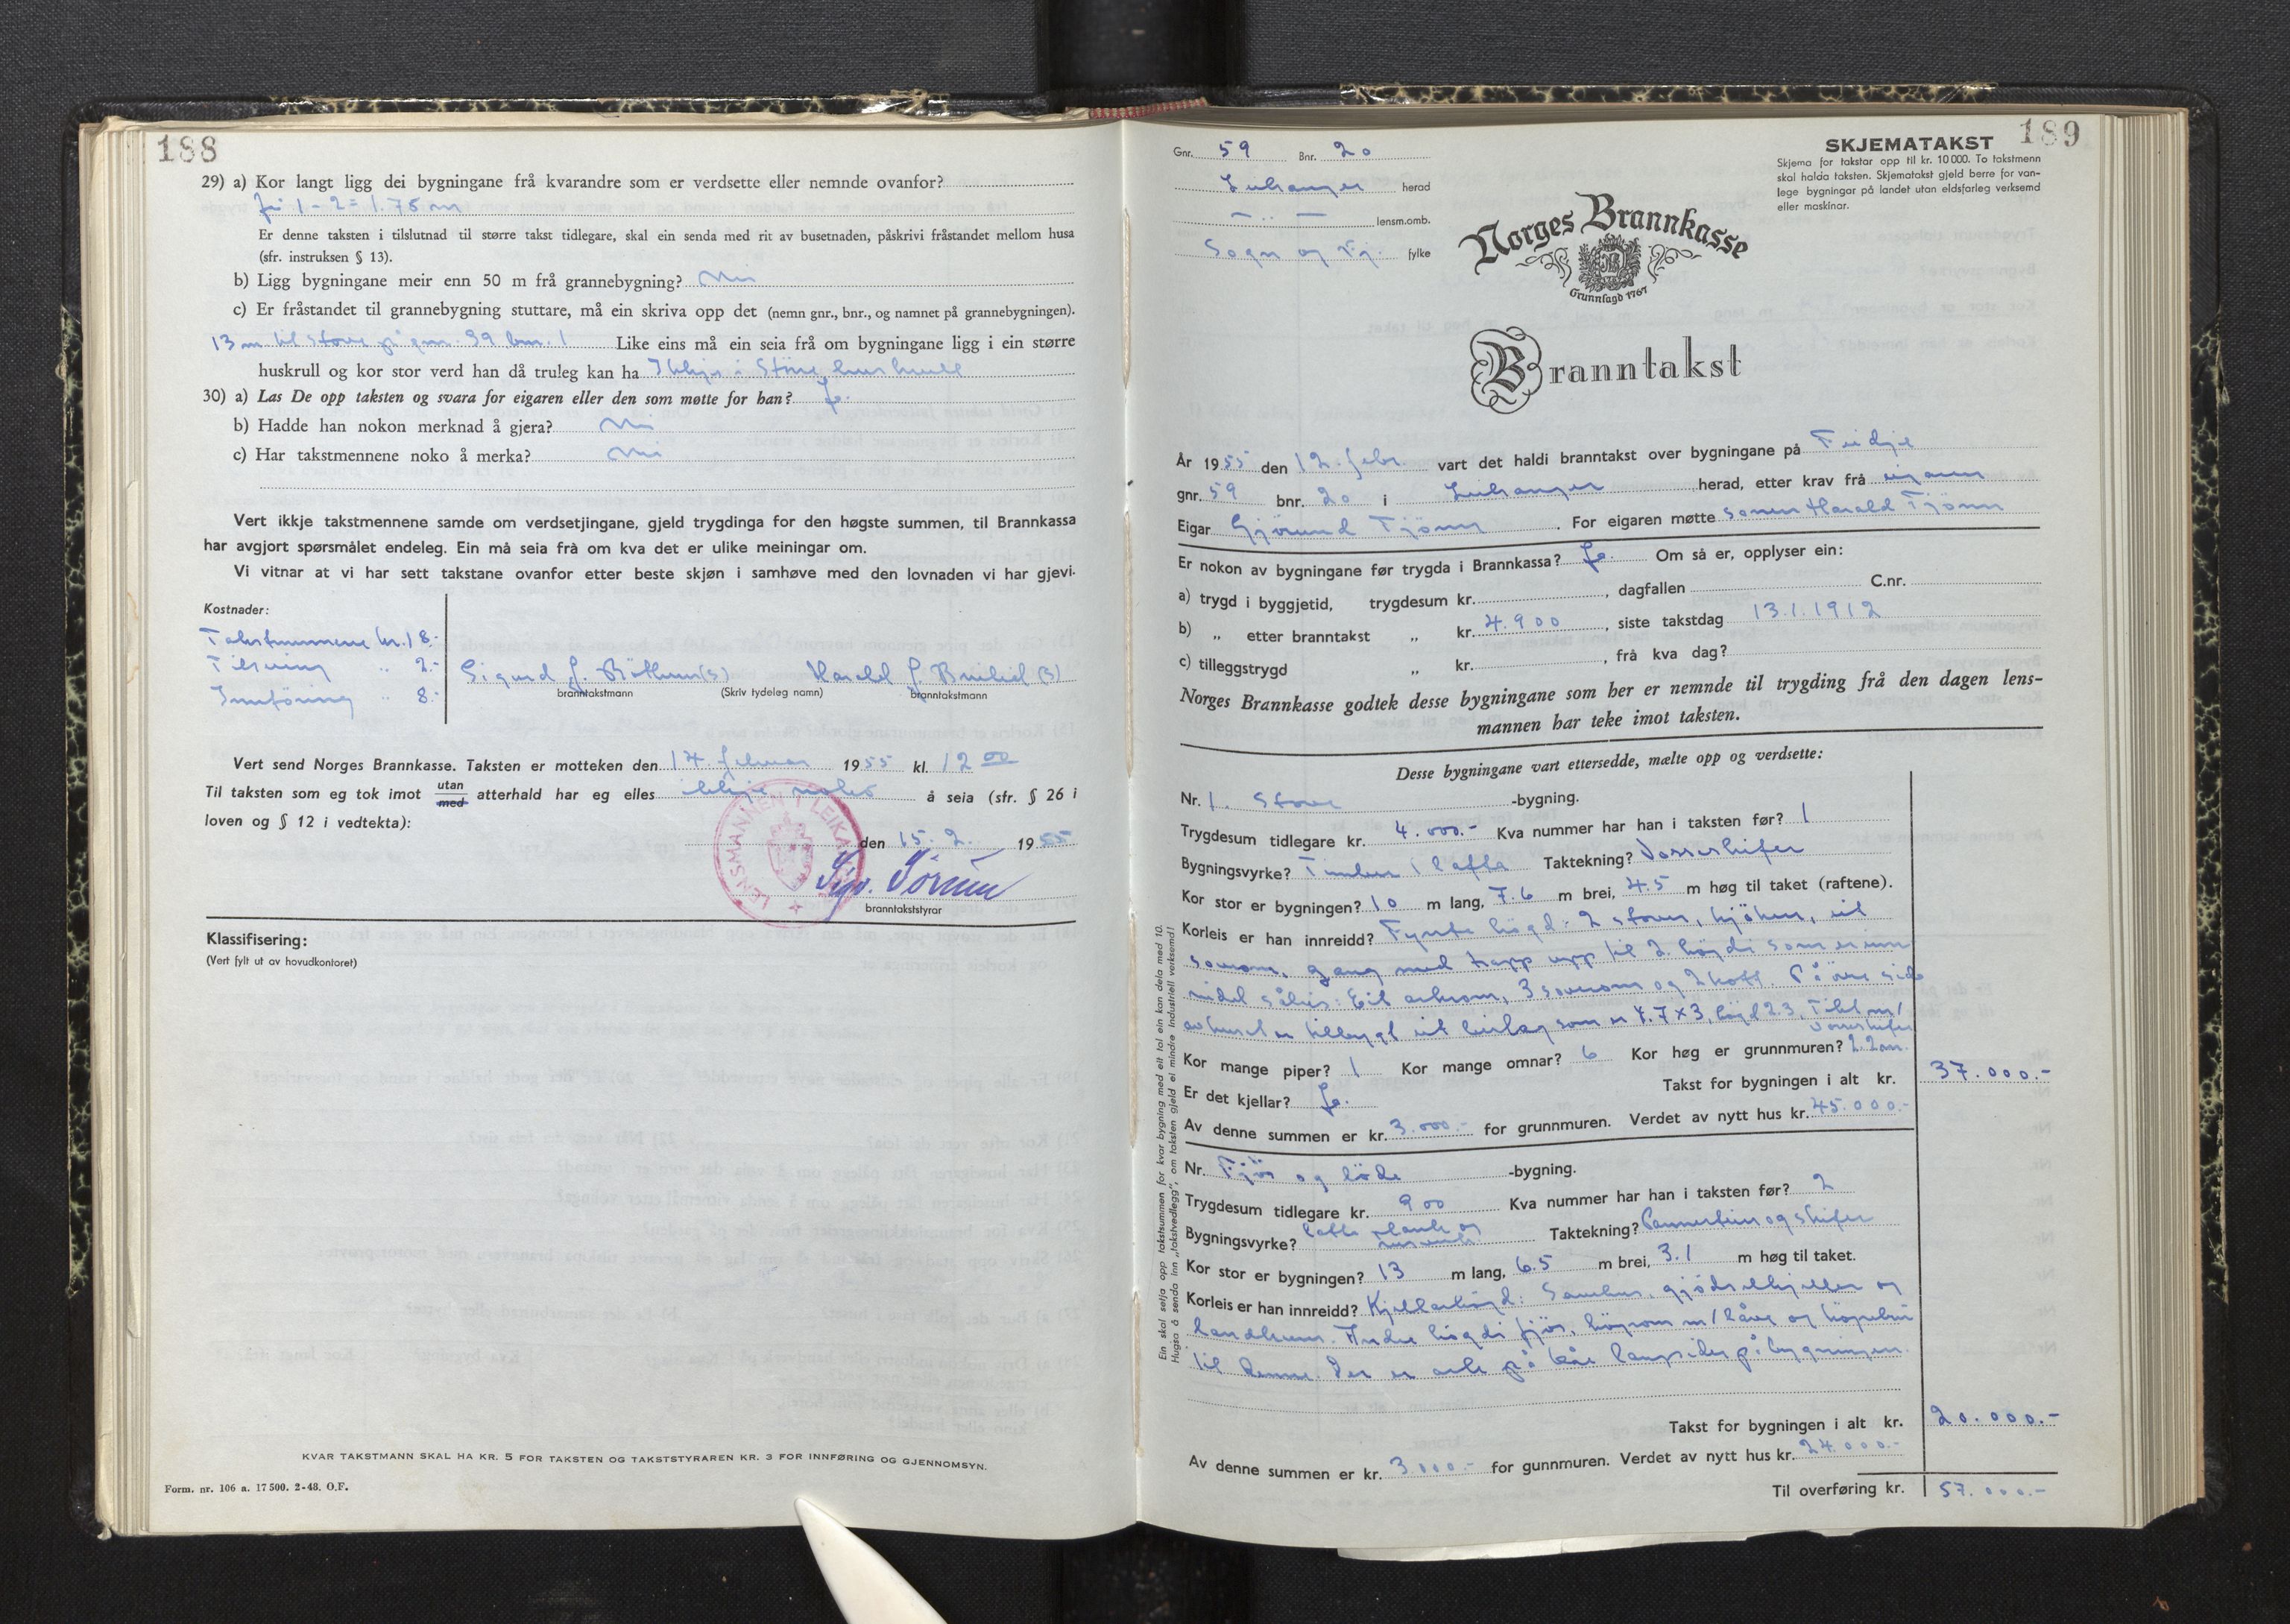 188
29) a) Kor langt ligg dei bygningane frå kvarandre som er verdsette eller nemnde ovanfor?
1 - 2 = 1.75 m
Er denne taksten i tilslutnad til større takst tidlegare, skal ein senda med rit av busetnaden, påskrivi fråstandet mellom husa
(sfr. instruksen § 13).
b) Ligg bygningane meir enn 50 m frå grannebygning? Nei
c) Er fråstandet til grannebygning stuttare, må ein skriva opp det (nemn gnr., bnr., og namnet på grannebygningen).
13 m til stove på gnr. 59 bnr. 1 Like eins må ein seia frå om bygningane ligg i ein større
huskrull og kor stor verd han då truleg kan ha Ikkje i Större huskrull
30) a) Las De opp taksten og svara for eigaren eller den som møtte for han? Ja.
b) Hadde han nokon merknad å gjera? Nei
c) Har takstmennene noko å merka? Nei
Vert ikkje takstmennene samde om verdsetjingane, gjeld trygdinga for den høgste summen, til Brannkassa
har avgjort spørsmålet endeleg. Ein må seia frå om kva det er ulike meiningar om.
Vi vitnar at vi har sett takstane ovanfor etter beste skjøn i samhøve med den lovnaden vi har gjevi.
Kostnader:
Takstmennene kr. 18.-
" 2.-
Innföring " 8.-
Sigurd J. (S) Harald J. (S)
branntakstmann (Skriv tydeleg namn) branntakstmann
Vert send Norges Brannkasse. Taksten er motteken den 14 februar 1955 kl. 12 00
Til taksten som eg tok imot utan med atterhald har eg elles ikkje noko å seia (sfr. § 26 i
loven og § 12 i vedtekta):
LENSMANNEN I LEIKANGER
den 15.2. 1955
branntakststyrar
Klassifisering:
(Vert fylt ut av hovudkontoret)
KVAR TAKSTMANN SKAL HA KR. 5 FOR TAKSTEN OG TAKSTSTYRAREN KR. 3 FOR INNFØRING OG GJENNOMSYN.
Form. nr. 106 a. 17 500. 2-48. O.F.
189
SKJEMATAKST
Skjema for takstar opp til kr. 10 000. To takstmenn
skal halda taksten. Skjematakst gjeld berre for van-
lege bygningar på landet utan eldsfarleg verksemd
eller maskinar.
Gnr. 59 Bnr. 20
Leikanger herad
lensm.omb.
Sogn og Fj. fylke
Norges Brannkasse
Grunnlagd 1767
Branntakst
År 1955 den 12. febr. vart det haldi branntakst over bygningane på
gnr. 59 bnr. 20 i Leikanger herad, etter krav frå eigaren
Eigar Tjönn. For eigaren møtte sonen Harald Tjönn
Er nokon av bygningane før trygda i Brannkassa? Ja. Om så er, opplyser ein:
a) trygd i byggjetid, trygdesum kr. , dagfallen C.nr.
b) „ etter branntakst „ kr. 4.900 , siste takstdag 13.1.1912
c) tilleggstrygd „ kr. , frå kva dag?
Norges Brannkasse godtek desse bygningane som her er nemnde til trygding frå den dagen lens-
mannen har teke imot taksten.
Desse bygningane vart ettersedde, mælte opp og verdsette:
Nr. 1. Stove -bygning.
Trygdesum tidlegare kr. 4.000.- Kva nummer har han i taksten før? 1
Bygningsvyrke? Timber i lafta Taktekning? Vossaskifer
Kor stor er bygningen? 10 m lang, 7.6 m brei, 4.5 m høg til taket (raftene).
Korleis er han innreidd? Fyrste högd: 2 stover, kjöken, eit
soverom, gang med trapp upp til 2. högdi som er inn
reidd såleis: Eit arkrom, 3 soverom og 2 kott. På övre side
av huset er tilbygt eit bislag som er 4.7 x 3, högd 2.3, Tekt m/
Vossaskifer
Kor mange piper? 1 Kor mange omnar? 6 Kor høg er grunnmuren? 2.2 m.
Er det kjellar? Ja. Takst for bygningen i alt kr. 37.000.-
Av denne summen er kr. 3.000.- for grunnmuren. Verdet av nytt hus kr. 45.000.-
Nr. Fjös og löde -bygning.
Trygdesum tidlegare kr. 900 Kva nummer har han i taksten før? 2
Bygningsvyrke? lafta plank og
Taktekning? Pannestein og skifer
Kor stor er bygningen? 13 m lang, 6.5 m brei, 3.1 m høg til taket.
Korleis er han innreidd? Kjellarhögd: Sauehus, gjödselkjeller og
landkum. Andre högdi fjös, högrom m/ låve og
til denne. Der er ark på båe langsider på bygningen.
Takst for bygningen i alt kr. 20.000.-
Av denne summen er kr. 3.000.- for gunnmuren. Verdet av nytt hus kr. 24.000.-
Til overføring kr. 57.000.-
Ein skal setja opp takstsummen for kvar bygning med eit tal ein kan dela med 10.
Hugsa å senda inn „takstvedlegg", om taksten gjeld ei mindre industriell verksemd!